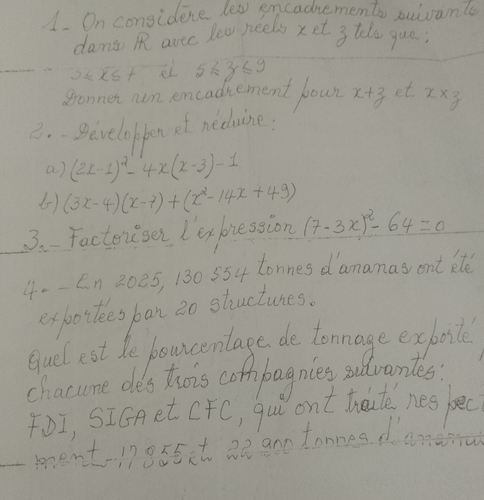 1 - On considère les encadrements suivants
dans ℝ avec les réels x et z tels que:
3 ≤ x ≤ 7 et 5 ≤ z ≤ 9
Donner un encadrement pour x+z et x×z
2. - Développer et réduire:
a) (2x-1)² - 4x(x-3) - 1
b) (3x-4)(x-7) + (x²-14x+49)
3. - Factoriser l'expression (7-3x)² - 64 = 0
4. - En 2025, 130 554 tonnes d'ananas ont été
exportées par 20 structures.
Quel est le pourcentage de tonnage exporté
chacune des trois compagnies suivantes:
FDI, SIGA et CFC, qui ont traité respect
ment 17 855 et 22 900 tonnes d'ananas